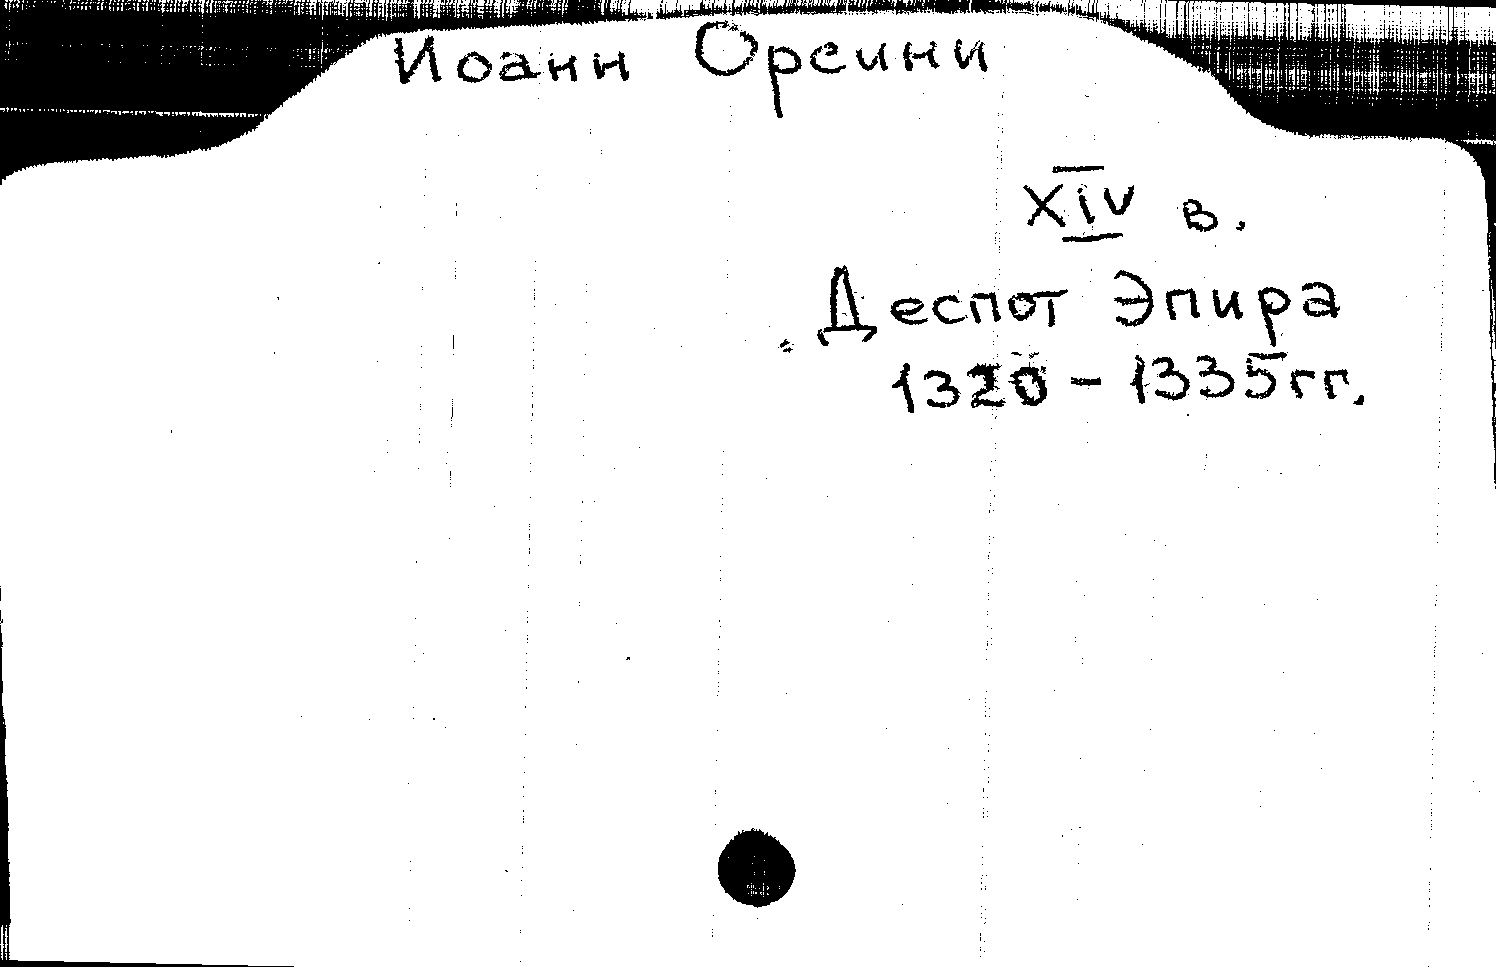 Иоанн Орсини
XIV в.
Деспот Эпира
1320 - 1335 гг.